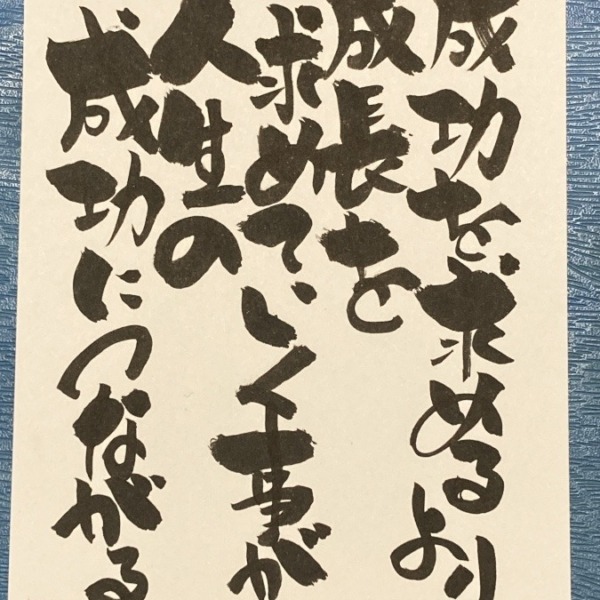 成功を求めるより
成長を
求めていく事が
人生の
成功につながる